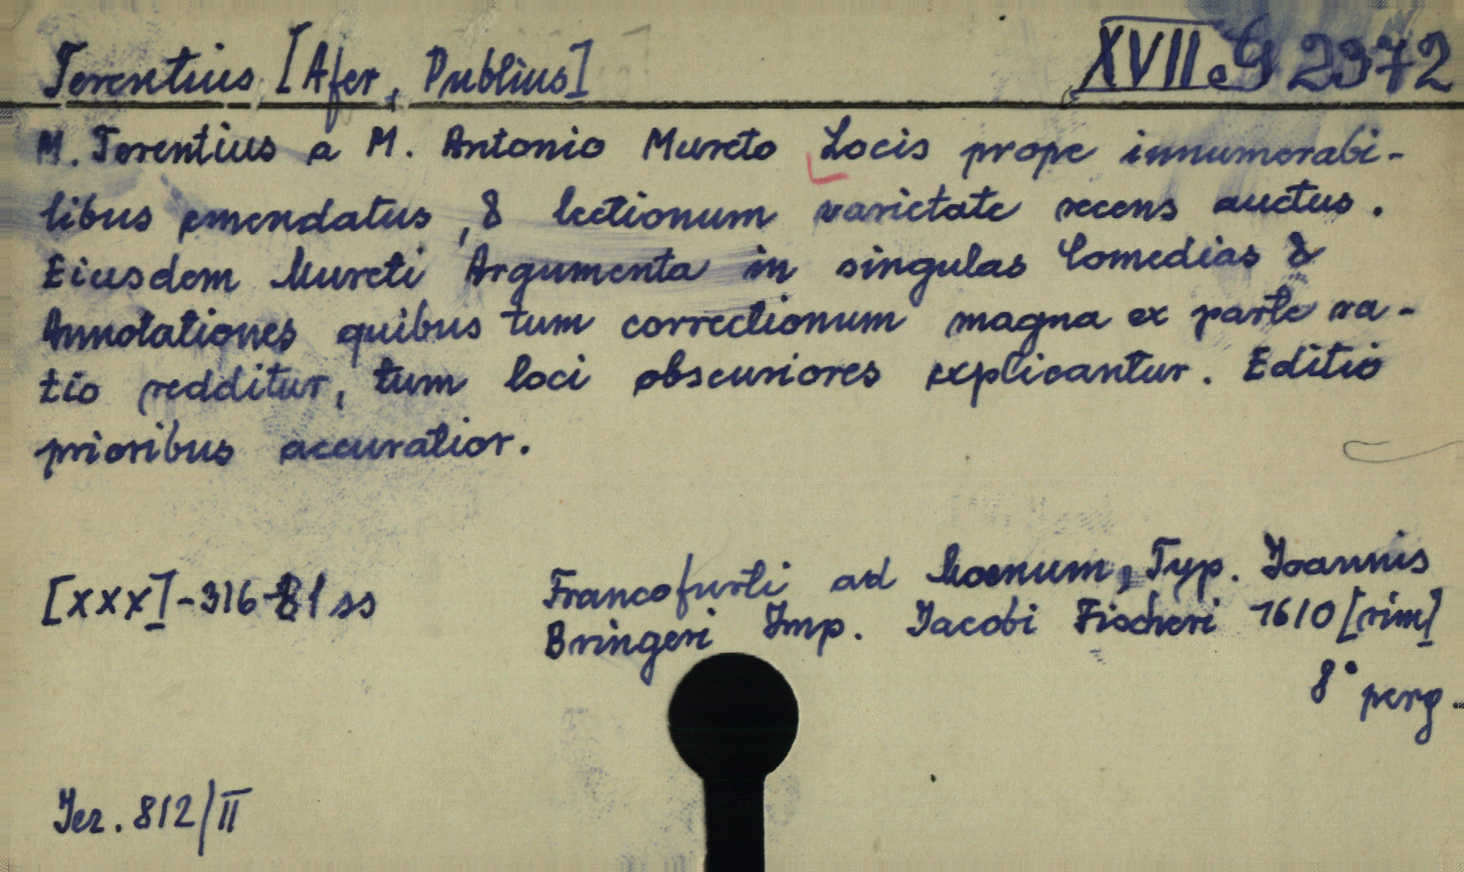 Terentius [Afer, Publius] XVII.G 2372
M. Terentius a M. Antonio Mureto Locis prope innumerabi-
libus emendatus, & lectionum varietate recens auctus.
Eiusdem Mureti Argumenta in singulas Comedias &
Annotationes quibus tum correctionum magna ex parte ra-
tio redditur, tum loci obscuriores explicantur. Editio
prioribus accuratior.
[XXX]-316-81 ss Francofurti ad Moenum, Typ. Ioannis
Bringeri Imp. Jacobi Fischeri 1610 [rim]
8° perg.
Jez. 812/II